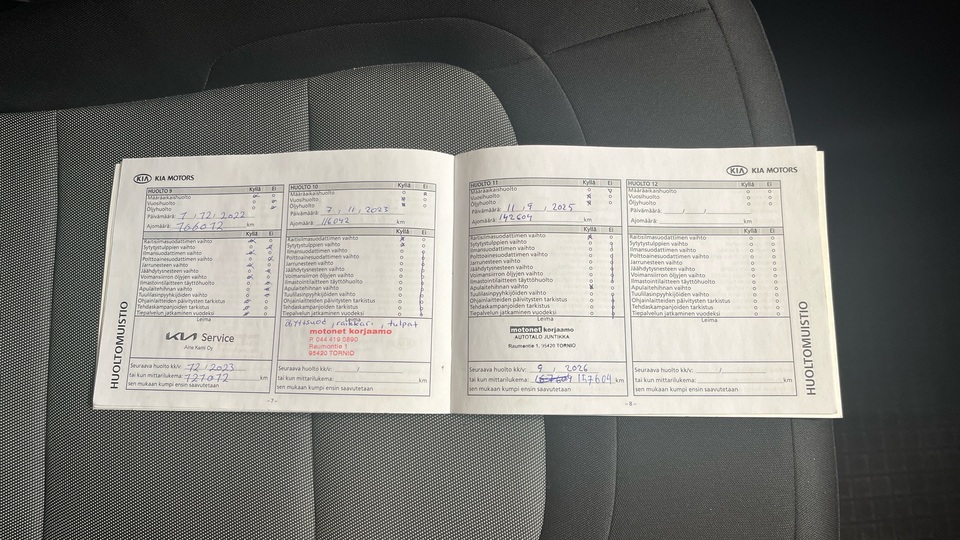 KIA KIA MOTORS
HUOLTO 9 Kyllä Ei
Määräaikaishuolto
Vuosihuolto
Öljyhuolto
Päivämäärä: 1 / 12 / 2022
Ajomäärä: 106072 km
Kyllä Ei
Raitisilmasuodattimen vaihto
Sytytystulppien vaihto
Ilmansuodattimen vaihto
Polttoainesuodattimen vaihto
Jarrunesteen vaihto
Jäähdytysnesteen vaihto
Voimansiirron öljyjen vaihto
Ilmastointilaitteen täyttöhuolto
Apulaitehihnan vaihto
Tuulilasinpyyhkijöiden vaihto
Ohjainlaitteiden päivitysten tarkistus
Tehdaskampanjoiden tarkistus
Tiepalvelun jatkaminen vuodeksi
Leima
KIA Service
Seuraava huolto kk/v: 12 / 2023
tai kun mittarilukema: 121072 km
sen mukaan kumpi ensin saavutetaan
HUOLTO 10 Kyllä Ei
Määräaikaishuolto
Vuosihuolto
Öljyhuolto
Päivämäärä: 7 / 11 / 2023
Ajomäärä: 116042 km
Kyllä Ei
Raitisilmasuodattimen vaihto
Sytytystulppien vaihto
Ilmansuodattimen vaihto
Polttoainesuodattimen vaihto
Jarrunesteen vaihto
Jäähdytysnesteen vaihto
Voimansiirron öljyjen vaihto
Ilmastointilaitteen täyttöhuolto
Apulaitehihnan vaihto
Tuulilasinpyyhkijöiden vaihto
Ohjainlaitteiden päivitysten tarkistus
Tehdaskampanjoiden tarkistus
Tiepalvelun jatkaminen vuodeksi
Leima
öljytsuod, raikkari, tulpat
motonet korjaamo
P. 044 419 0890
Raumontie 1
95420 TORNIO
Seuraava huolto kk/v: /
tai kun mittarilukema: km
sen mukaan kumpi ensin saavutetaan
HUOLTOMUISTIO
- 7 -
KIA KIA MOTORS
HUOLTO 11 Kyllä Ei
Määräaikaishuolto
Vuosihuolto
Öljyhuolto
Päivämäärä: 11 / 9 / 2025
Ajomäärä: 142604 km
Kyllä Ei
Raitisilmasuodattimen vaihto
Sytytystulppien vaihto
Ilmansuodattimen vaihto
Polttoainesuodattimen vaihto
Jarrunesteen vaihto
Jäähdytysnesteen vaihto
Voimansiirron öljyjen vaihto
Ilmastointilaitteen täyttöhuolto
Apulaitehihnan vaihto
Tuulilasinpyyhkijöiden vaihto
Ohjainlaitteiden päivitysten tarkistus
Tehdaskampanjoiden tarkistus
Tiepalvelun jatkaminen vuodeksi
Leima
motonet korjaamo
AUTOTALO JUNTIKKA
Raumontie 1, 95420 TORNIO
Seuraava huolto kk/v: 9 / 2026
tai kun mittarilukema: 157604 km
sen mukaan kumpi ensin saavutetaan
HUOLTO 12 Kyllä Ei
Määräaikaishuolto
Vuosihuolto
Öljyhuolto
Päivämäärä: / /
Ajomäärä: km
Kyllä Ei
Raitisilmasuodattimen vaihto
Sytytystulppien vaihto
Ilmansuodattimen vaihto
Polttoainesuodattimen vaihto
Jarrunesteen vaihto
Jäähdytysnesteen vaihto
Voimansiirron öljyjen vaihto
Ilmastointilaitteen täyttöhuolto
Apulaitehihnan vaihto
Tuulilasinpyyhkijöiden vaihto
Ohjainlaitteiden päivitysten tarkistus
Tehdaskampanjoiden tarkistus
Tiepalvelun jatkaminen vuodeksi
Leima
Seuraava huolto kk/v: /
tai kun mittarilukema: km
sen mukaan kumpi ensin saavutetaan
HUOLTOMUISTIO
- 8 -